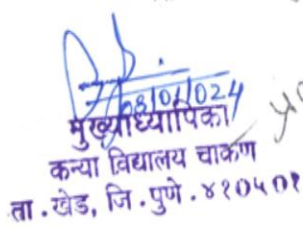 03/01/024
मुख्याध्यापिका
कन्या विद्यालय चाकण
ता. खेड, जि. पुणे. ४१०५०१